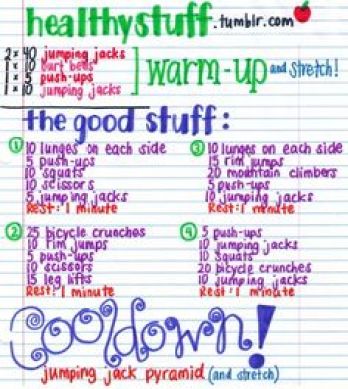 healthystuff.tumblr.com
2x 40 jumping jacks
1x 10 burt bees
1x 5 push-ups
1x 10 jumping jacks
warm-up and stretch!
the good stuff:
1
10 lunges on each side
5 push-ups
10 squats
10 scissors
5 jumping jacks
Rest: 1 minute
2
25 bicycle crunches
10 rim jumps
5 push-ups
10 scissors
15 leg lifts
Rest: 1 minute
3
10 lunges on each side
15 rim jumps
20 mountain climbers
5 push-ups
10 jumping jacks
Rest: 1 minute
4
5 push-ups
10 jumping jacks
10 squats
20 bicycle crunches
10 jumping jacks
Rest: 1 minute
Cooldown!
jumping jack pyramid (and stretch)